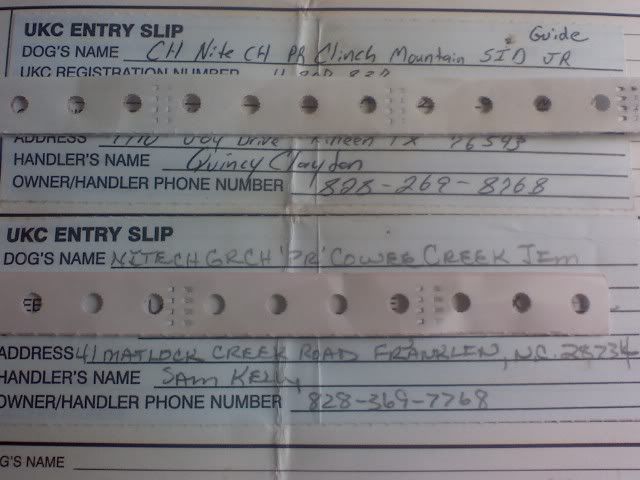 UKC ENTRY SLIP
Guide
DOG'S NAME CH Nite CH PR Clinch Mountain SID JR
UKC REGISTRATION NUMBER
ADDRESS Drive Killeen TX 76543
HANDLER'S NAME Quincy Claydon
OWNER/HANDLER PHONE NUMBER 828-269-8768
UKC ENTRY SLIP
DOG'S NAME NITECH GRCH 'PR' COWEE CREEK JEM
ADDRESS 41 MATLOCK CREEK ROAD FRANKLEN, N.C. 28734
HANDLER'S NAME SAM KELLY
OWNER/HANDLER PHONE NUMBER 828-369-7768
G'S NAME